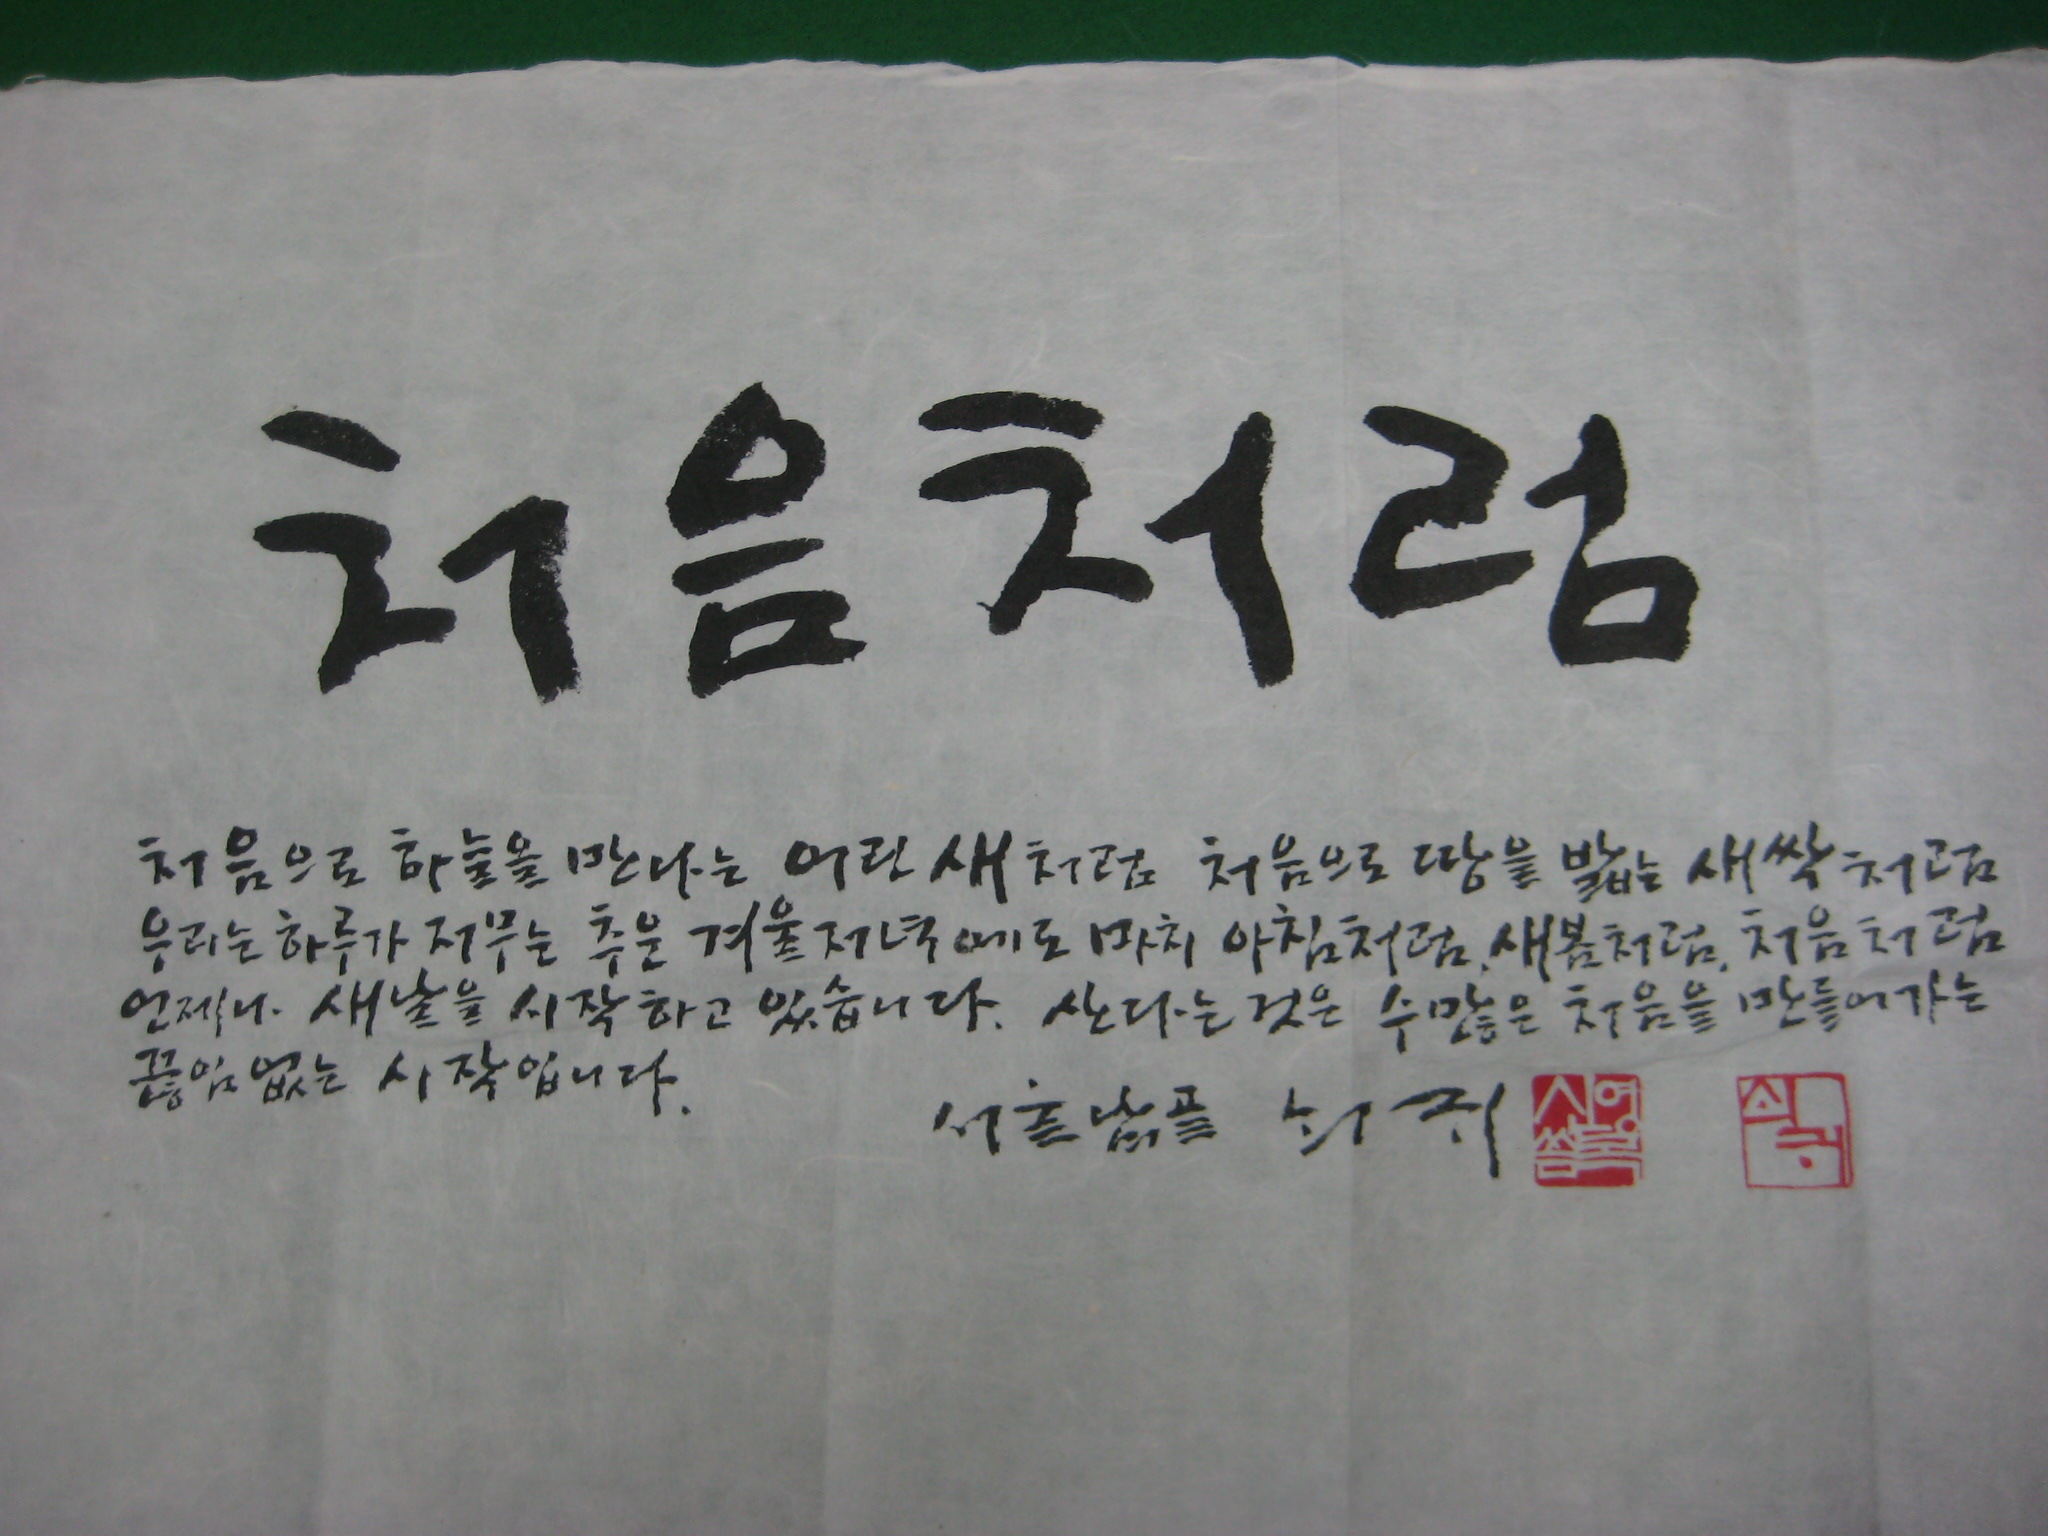 처음처럼
처음으로 하늘을 만나는 어린 새처럼 처음으로 땅을 밟는 새싹처럼
우리는 하루가 저무는 추운 겨울저녁에도 마치 아침처럼, 새봄처럼, 처음처럼
언제나 새날을 시작하고 있습니다. 산다는 것은 수많은 처음을 만들어가는
끊임없는 시작입니다.
서춘남골